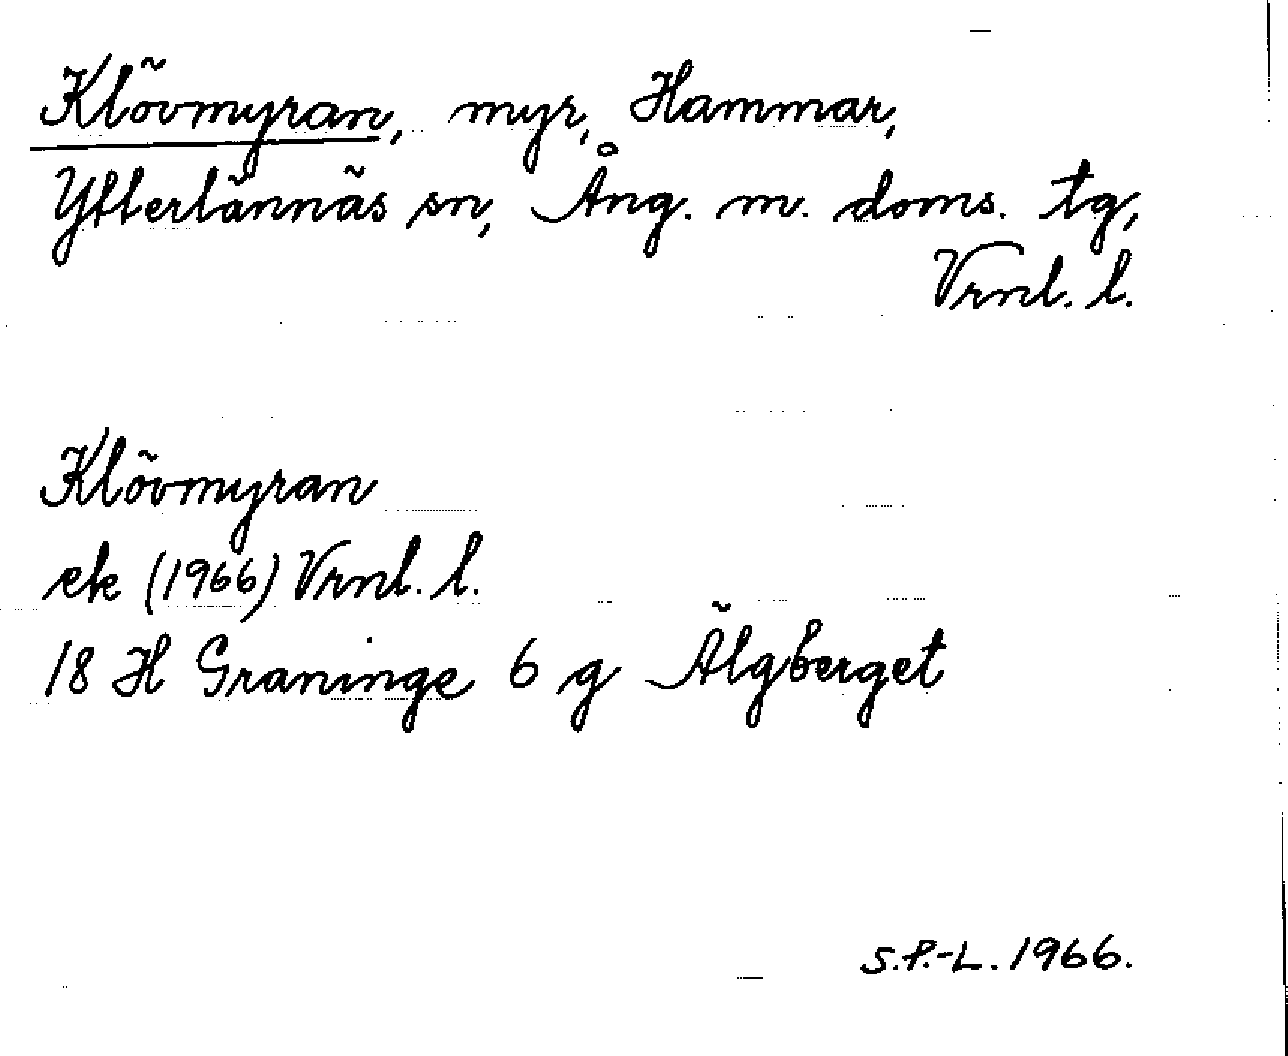 Klövmyran, myr, Hammar,
Ytterlännäs sn, Ång. m. doms. tg,
Vrnl. l.
Klövmyran
ek (1966) Vrnl. l.
18 H Graninge 6 g Älgberget
S.P.-L. 1966.